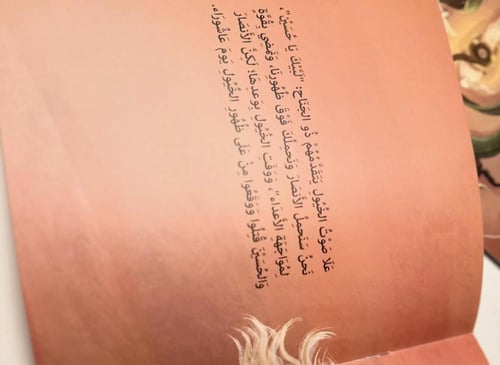 عَلَا صَوْتُ الخُيُولِ يَتَقَدَّمُهُمْ ذُو الجَنَاحِ: "لَبَّيْكَ يَا حُسَيْن"،
نَحْنُ سَنَحمِلُ الأَنصَارَ وَنَحمِلُكَ فَوْقَ ظُهُورِنَا، وَنَمْضِي بِقُوَّةٍ
لِمُوَاجَهَةِ الأَعدَاء"، وَوَفَتِ الخُيُولِ بِوَعدِهَا؛ لَكِنَّ الأَنصَارَ
وَالحُسَيْنَ قُتِلُوا وَوَقَعُوا مِنْ عَلَى ظُهُورِ الخُيُولِ يَومَ عَاشُورَاء.